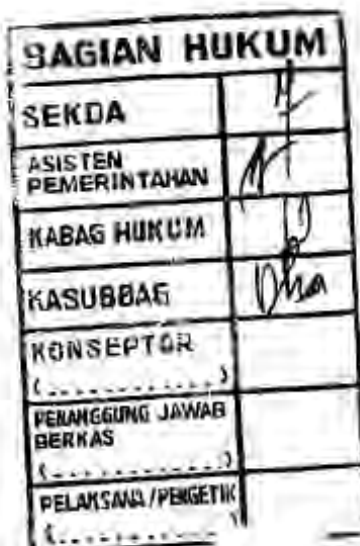 BAGIAN HUKUM
SEKDA
ASISTEN
PEMERINTAHAN
KABAG HUKUM
KASUBBAG
KONSEPTOR
(...........)
PENANGGUNG JAWAB
BERKAS
(...........)
PELAKSANA/PENGETIK
(...........)